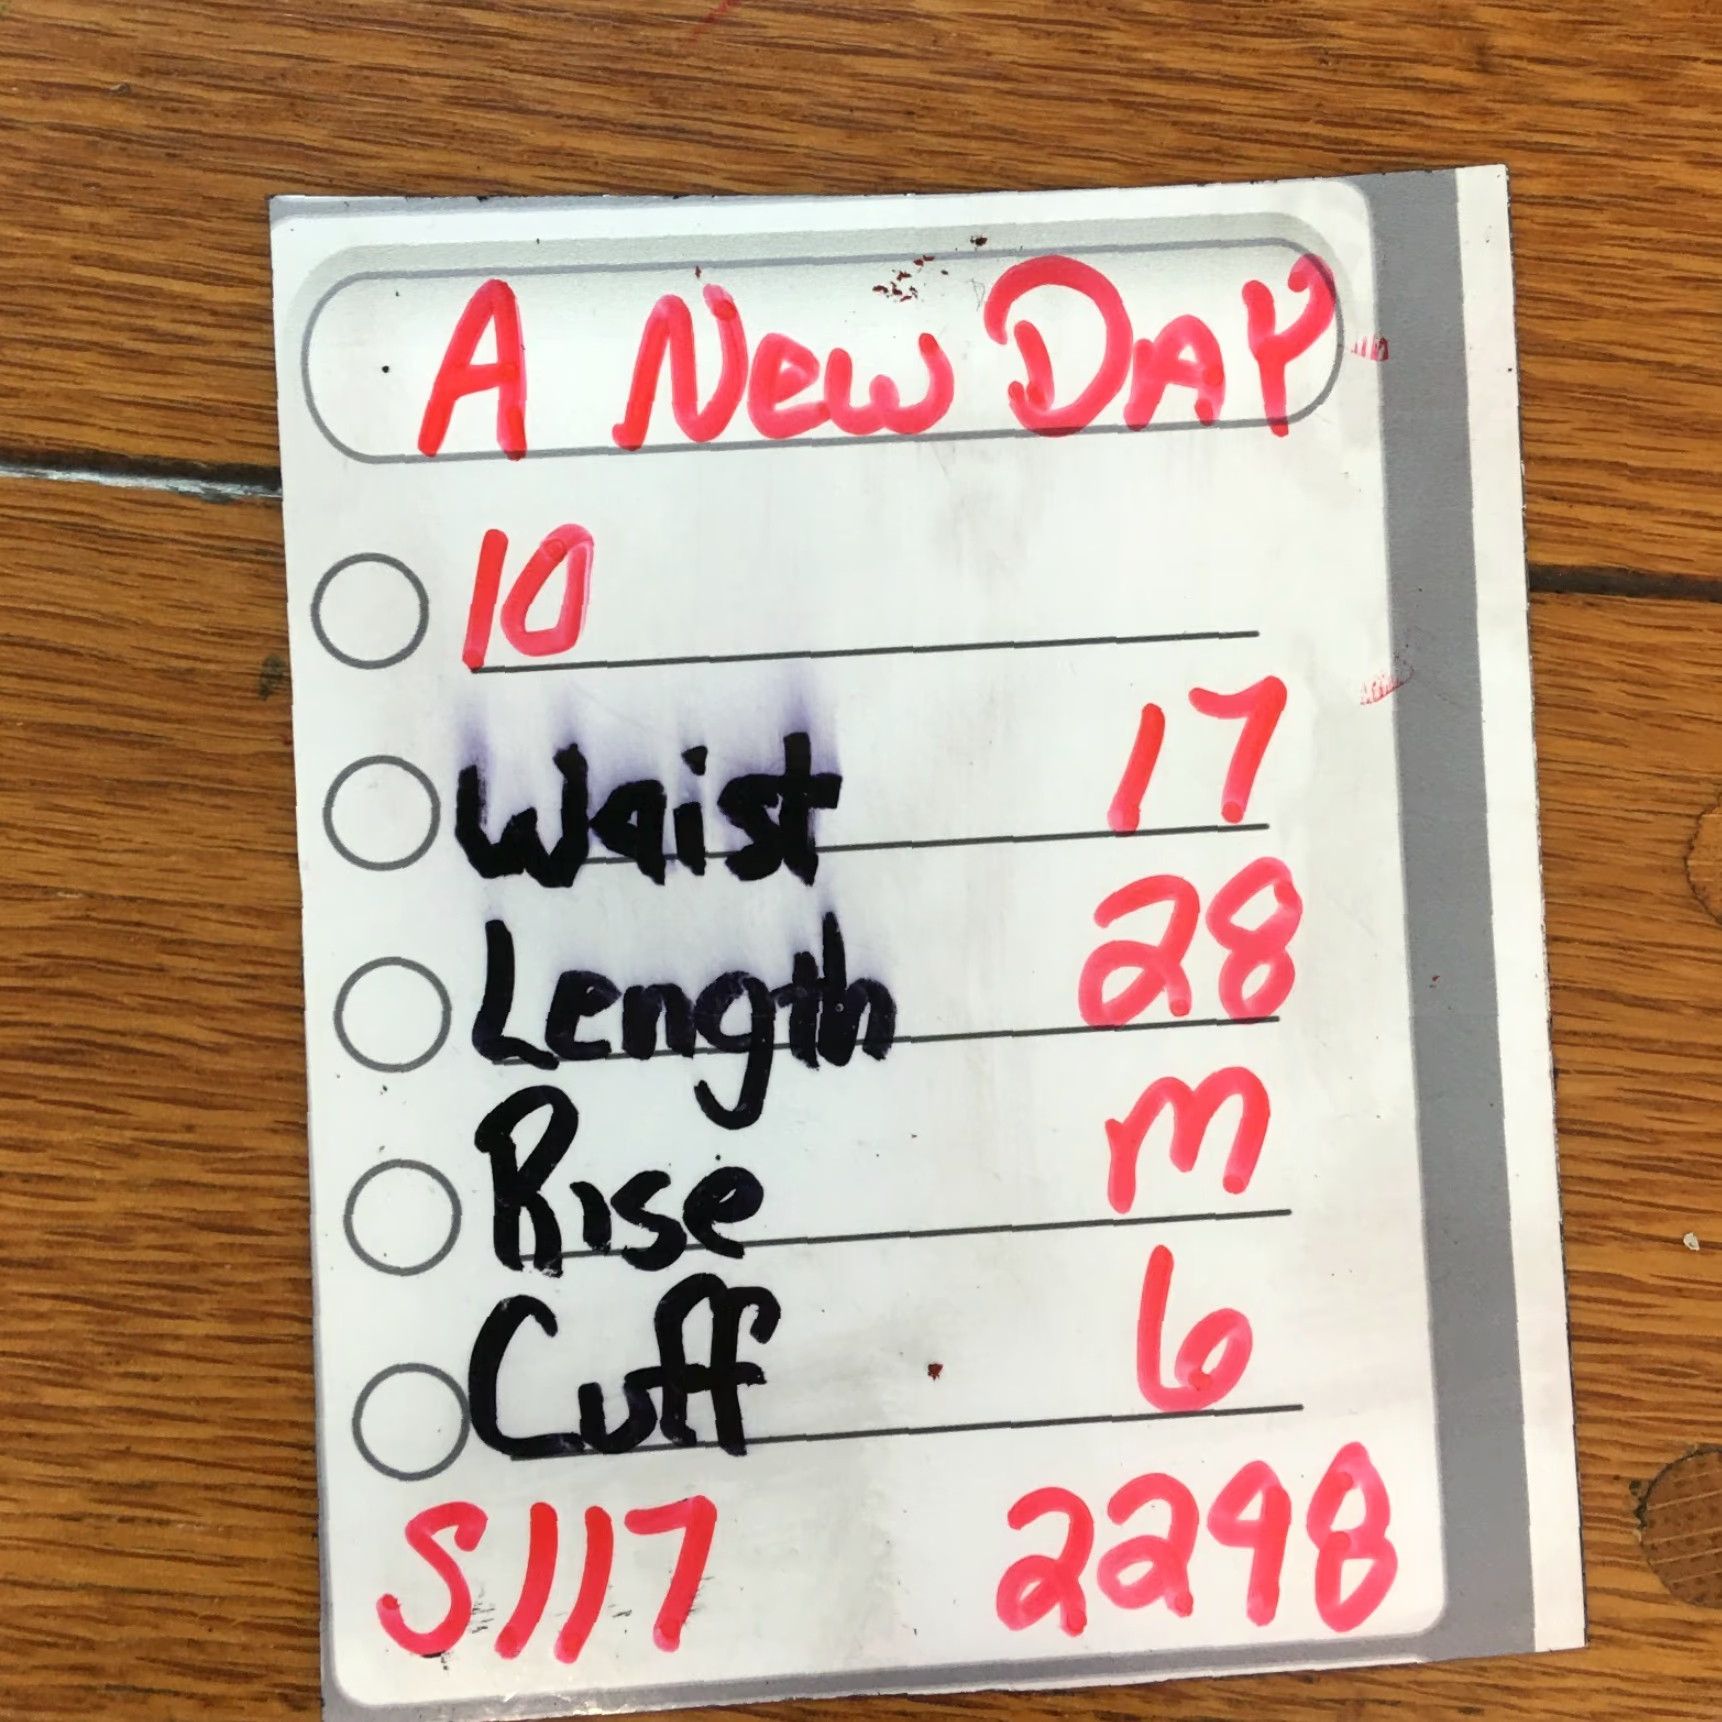 A New DAY
10
Waist 17
Length 28
Rise m
Cuff 6
S117 2298